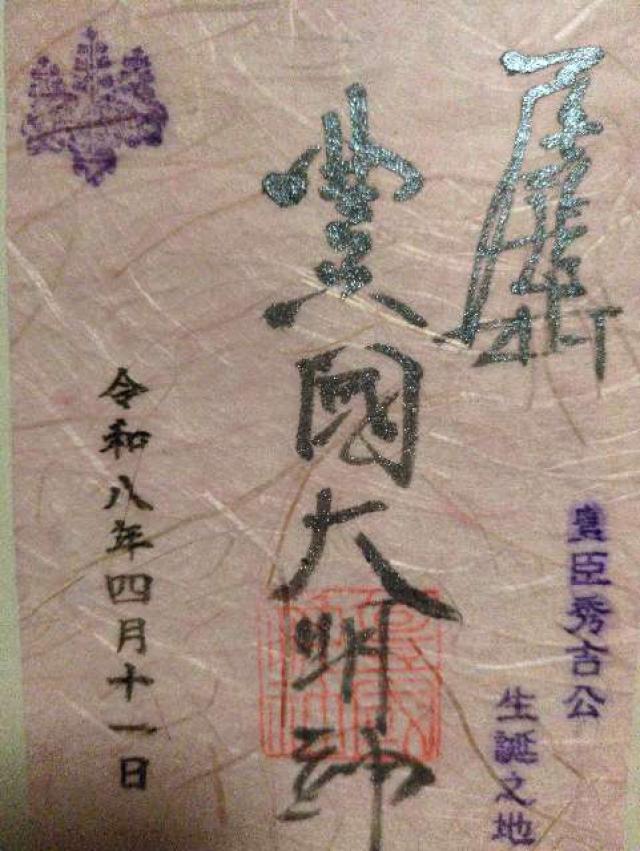 豊臣秀吉公
生誕之地
豊國大明神
令和八年四月十一日